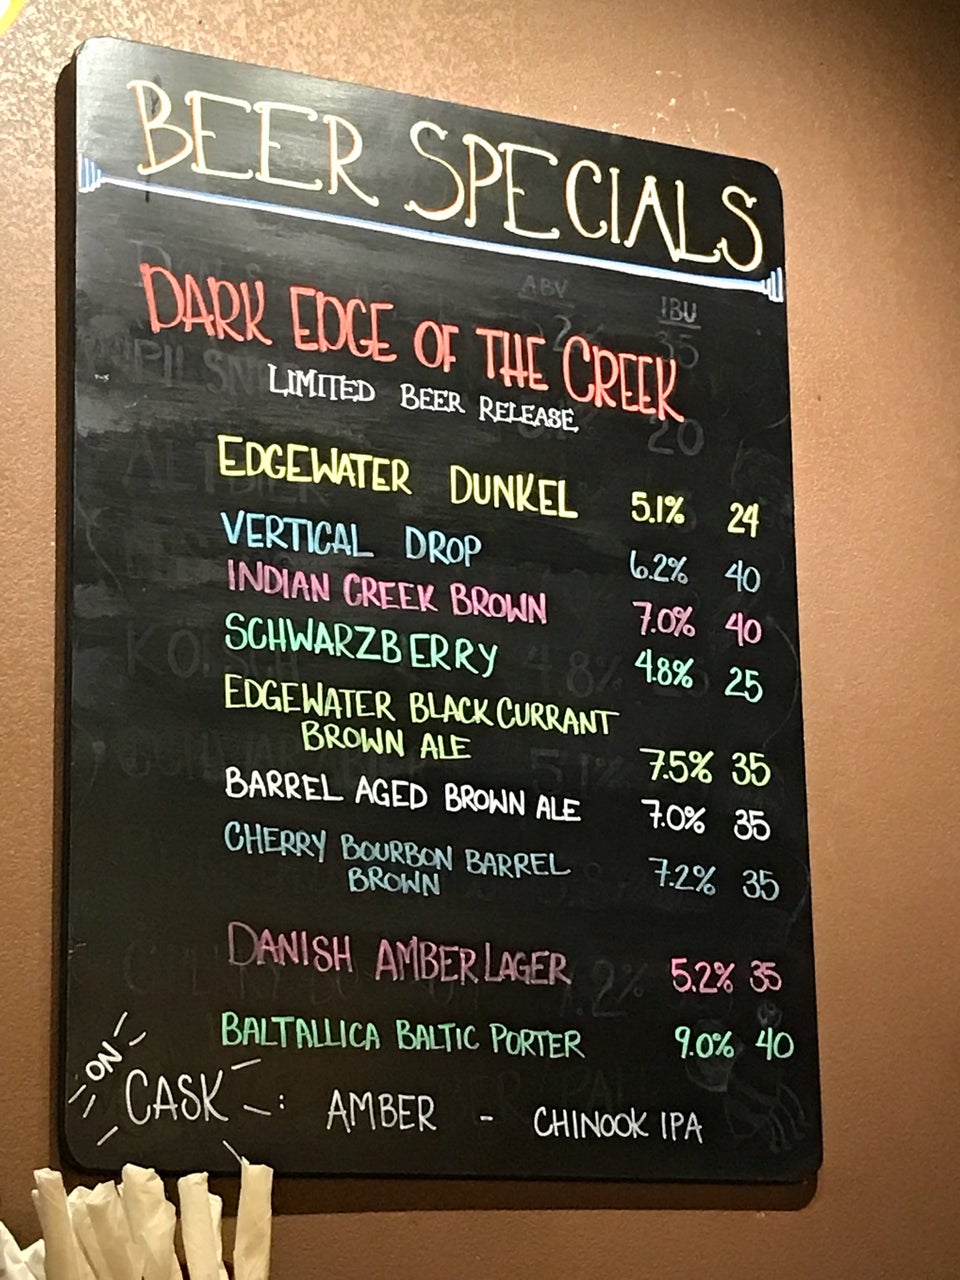 BEER SPECIALS
ABV IBU
DARK EDGE OF THE CREEK
LIMITED BEER RELEASE
EDGEWATER DUNKEL 5.1% 24
VERTICAL DROP 6.2% 40
INDIAN CREEK BROWN 7.0% 40
SCHWARZBERRY 4.8% 25
EDGEWATER BLACK CURRANT
BROWN ALE 7.5% 35
BARREL AGED BROWN ALE 7.0% 35
CHERRY BOURBON BARREL
BROWN 7.2% 35
DANISH AMBER LAGER 5.2% 35
BALTALLICA BALTIC PORTER 9.0% 40
ON
CASK : AMBER - CHINOOK IPA